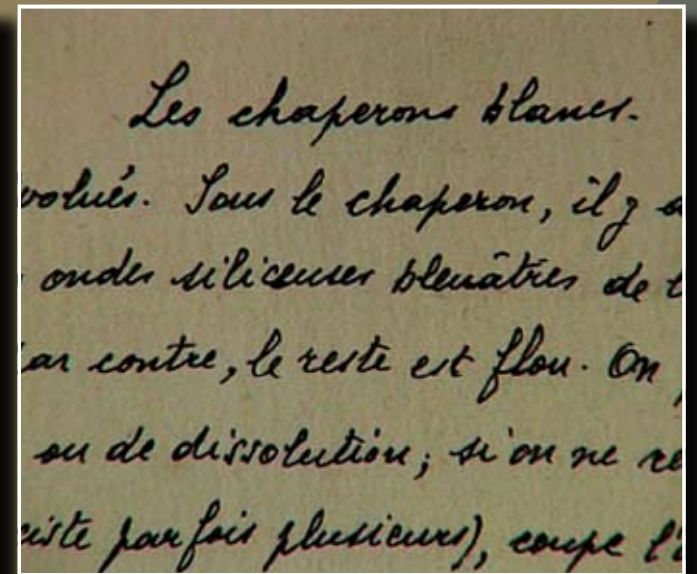 Les chaperons blancs.
volués. Sous le chaperon, il y a
ondes siliceuses bleuâtres de
ar contre, le reste est flou. On
ou de dissolution; si on ne re
iste parfois plusieurs), coupe l'